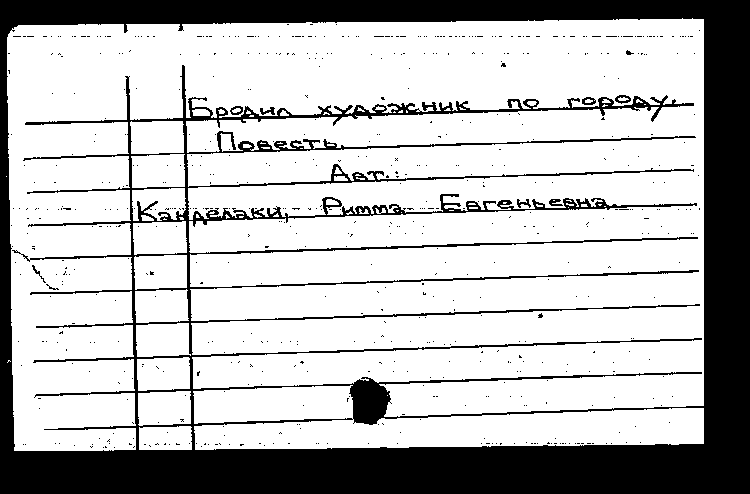 Бродил художник по городу.
Повесть.
Авт.:
Канделаки, Римма Евгеньевна.